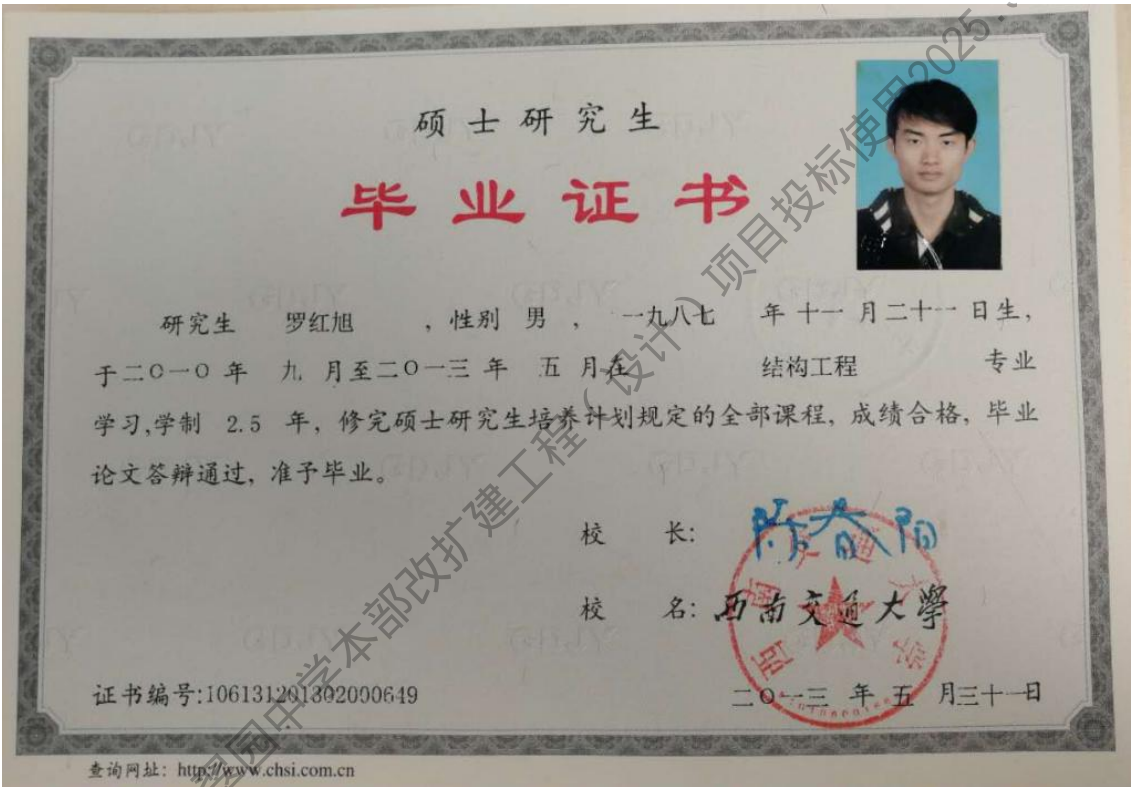 硕士研究生
毕业证书
研究生 罗红旭 ，性别 男 ， 一九八七 年 十一 月 二十一 日生，
于二〇一〇 年 九 月至二〇一三 年 五 月在 结构工程 专业
学习,学制 2.5 年，修完硕士研究生培养计划规定的全部课程，成绩合格，毕业
论文答辩通过，准予毕业。
校 长: 陈春阳
校 名: 西南交通大學
西南交通大学
证书编号:106131201302000649
二〇一三 年 五 月三十一日
查询网址：http://www.chsi.com.cn
园中学本部改扩建工程（设计）项目投标使用2025.